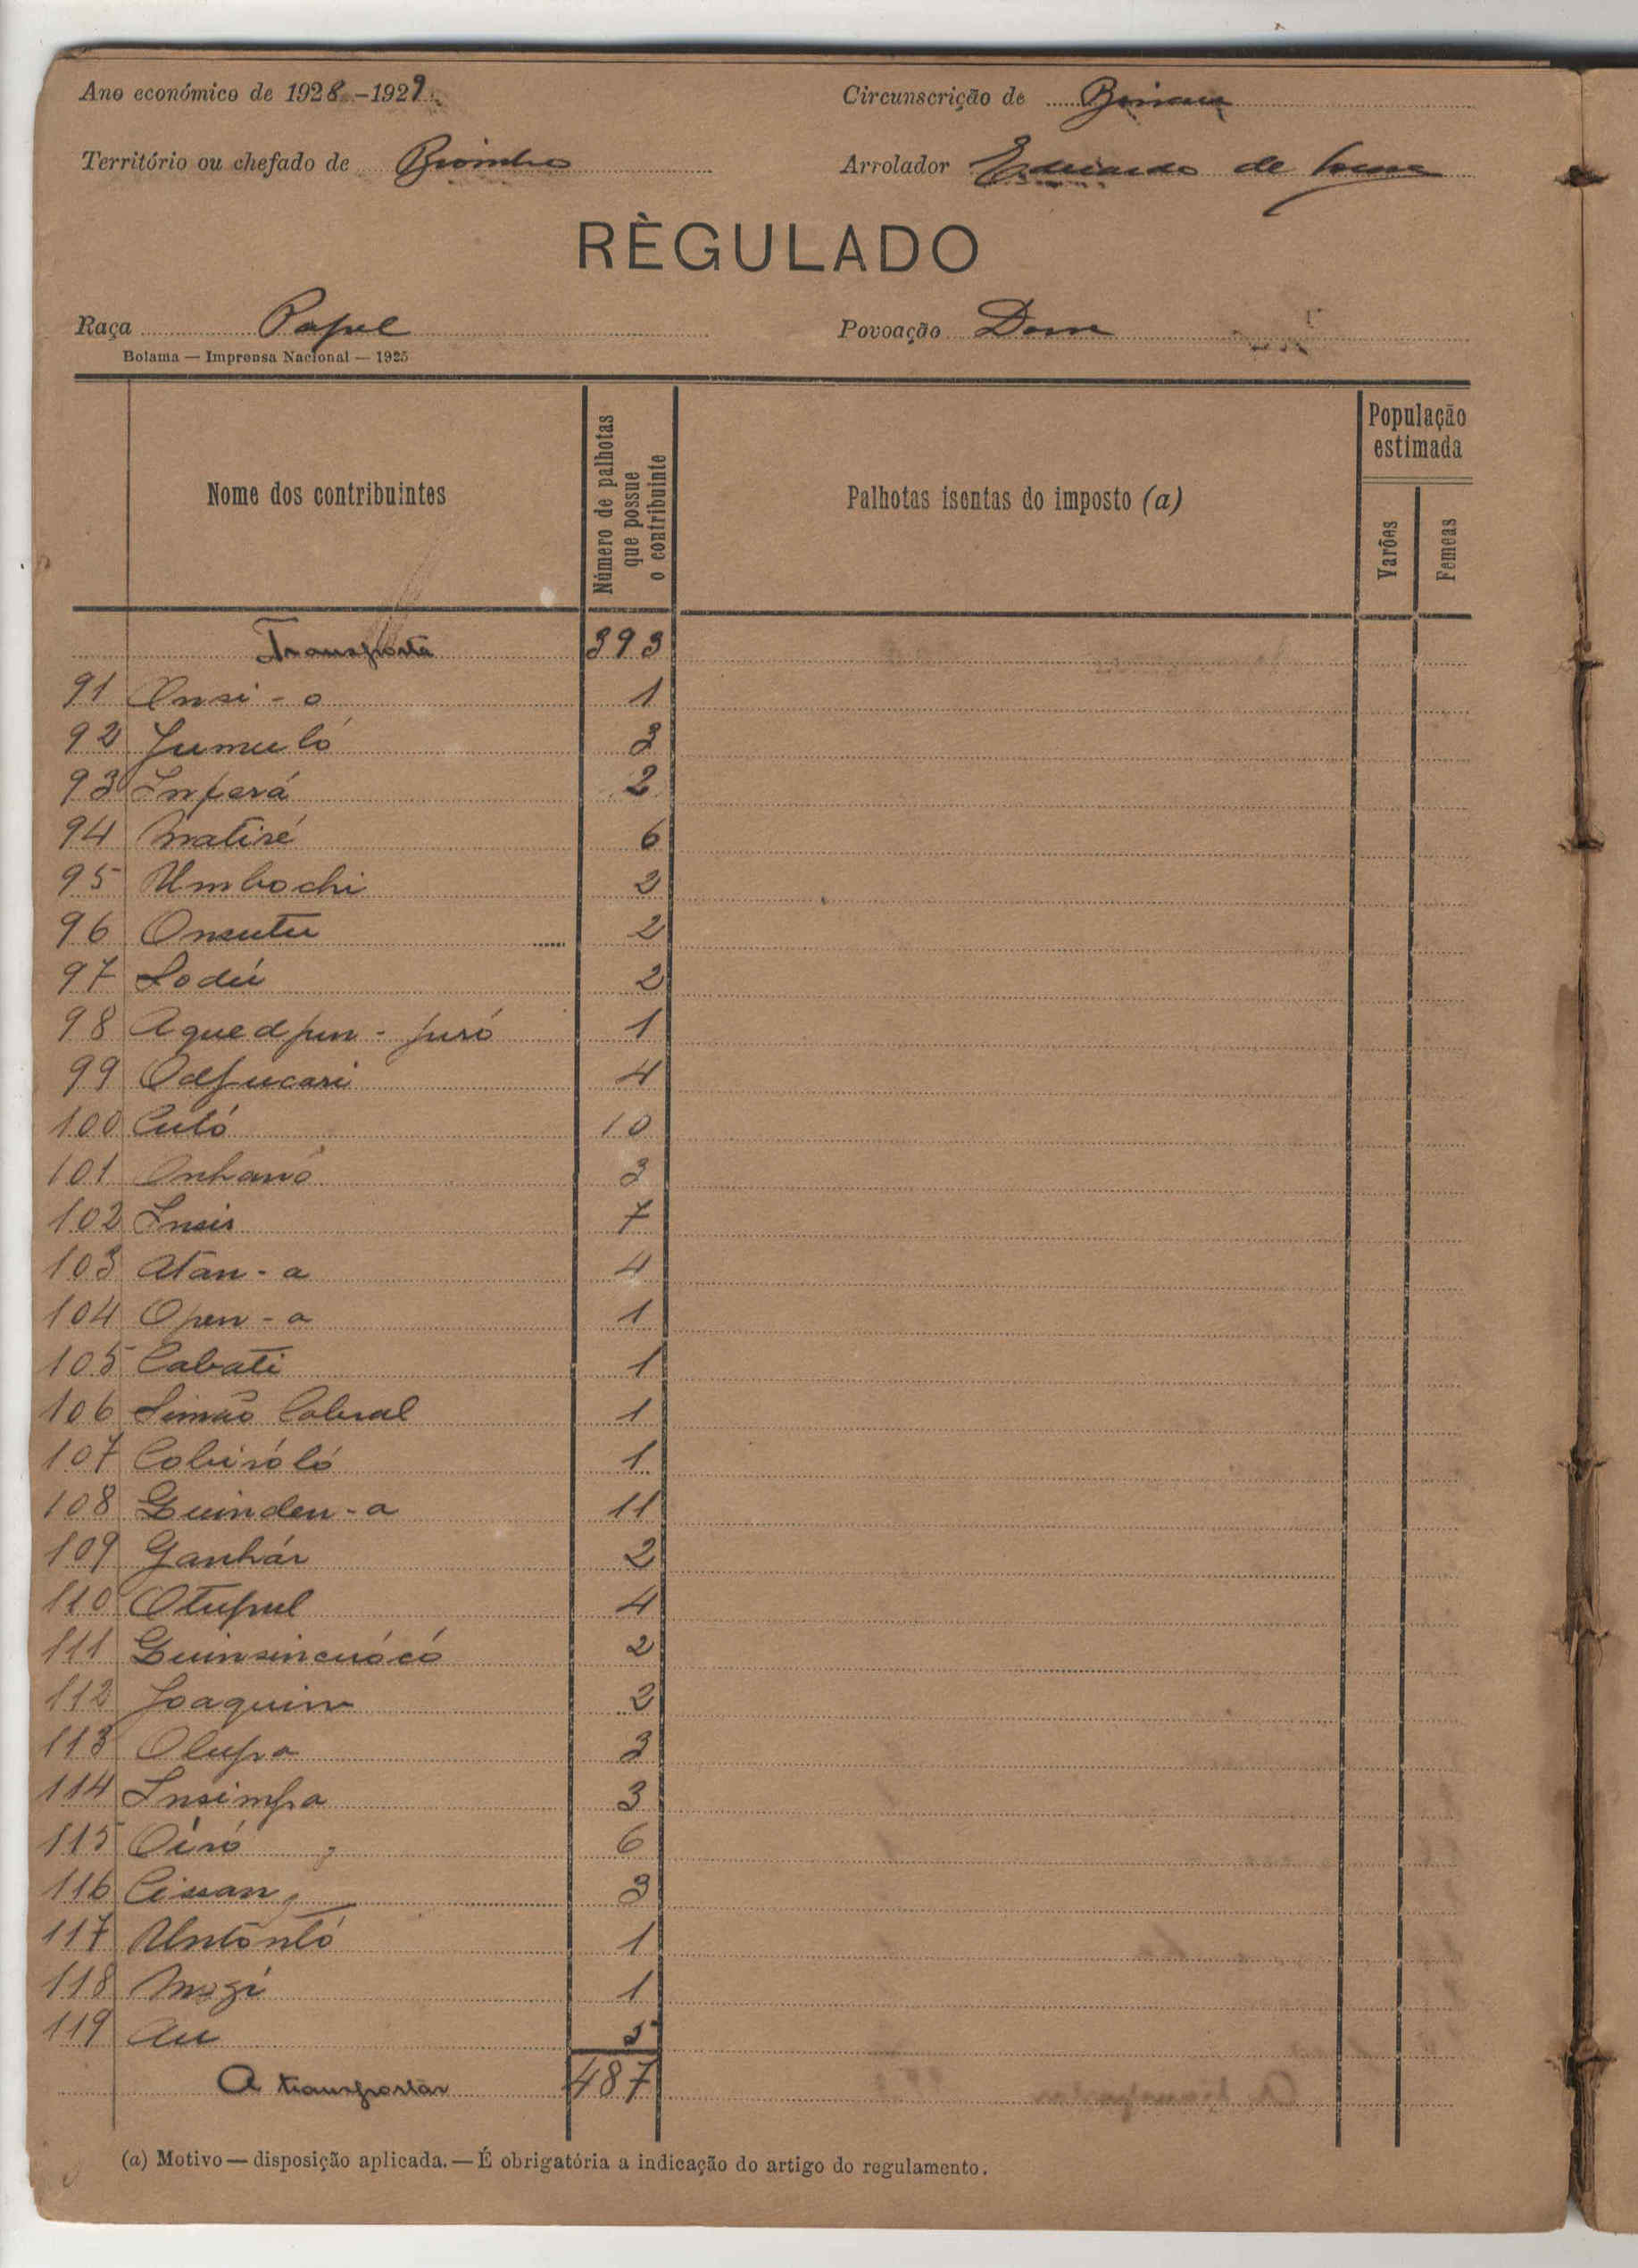 Ano económico de 1928-1929
Circunscrição de
Território ou chefado de Biombo
Arrolador Eduardo de
RÈGULADO
Raça Papel
Povoação Dom
Bolama — Imprensa Nacional — 1925
Nome dos contribuintes
Número de palhotas que possue o contribuinte
Palhotas isentas do imposto (a)
População estimada
Varões
Femeas
Transporte 393
91 Onsi-o 1
92 Jumuló 3
93 Inferá 2
94 Matiré 6
95 Umbochi 2
96 Onsutu 2
97 Lodú 2
98 Aquedpun-puró 1
99 Odpucari 4
100 Culó 10
101 Onhanó 3
102 Insis 7
103 Atan-a 4
104 Open-a 1
105 Cabati 1
106 Simão Cabral 1
107 Cobiróló 1
108 Guinden-a 11
109 Ganhár 2
110 Otupul 4
111 Guinsincuócó 2
112 Joaquim 2
113 Olupa 3
114 Insimpa 3
115 Oiró 6
116 Cissan 3
117 Untontó 1
118 Mozi 1
119 Au 5
A transportar 487
(a) Motivo — disposição aplicada. — É obrigatória a indicação do artigo do regulamento.